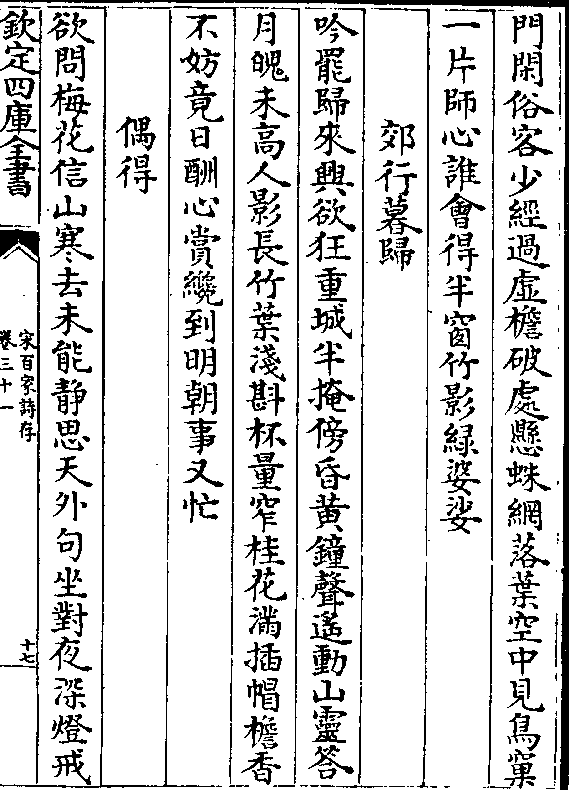 門閑俗客少經過虛檐破處懸蛛網落葉空中見鳥窠
一片師心誰會得半窗竹影緑婆娑
郊行暮歸
吟罷歸來興欲狂重城半掩傍昏黄鐘聲遙動山靈答
月魄未高人影長竹葉淺斟杯量窄桂花滿插帽檐香
不妨竟日酬心賞纔到明朝事又忙
偶得
欲問梅花信山寒去未能靜思天外句坐對夜深燈戒
欽定四庫全書
宋百家詩存
卷三十一
十七